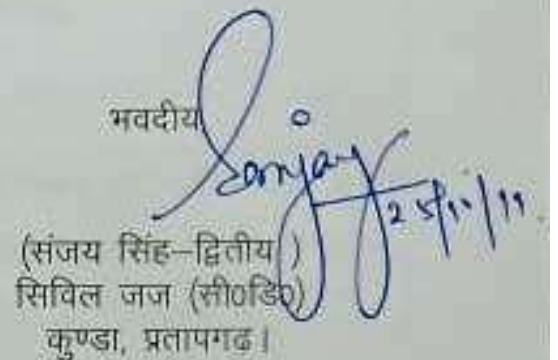 भवदीय
Sanjay
25/11/19
(संजय सिंह–द्वितीय)
सिविल जज (सी०डि०)
कुण्डा, प्रतापगढ।